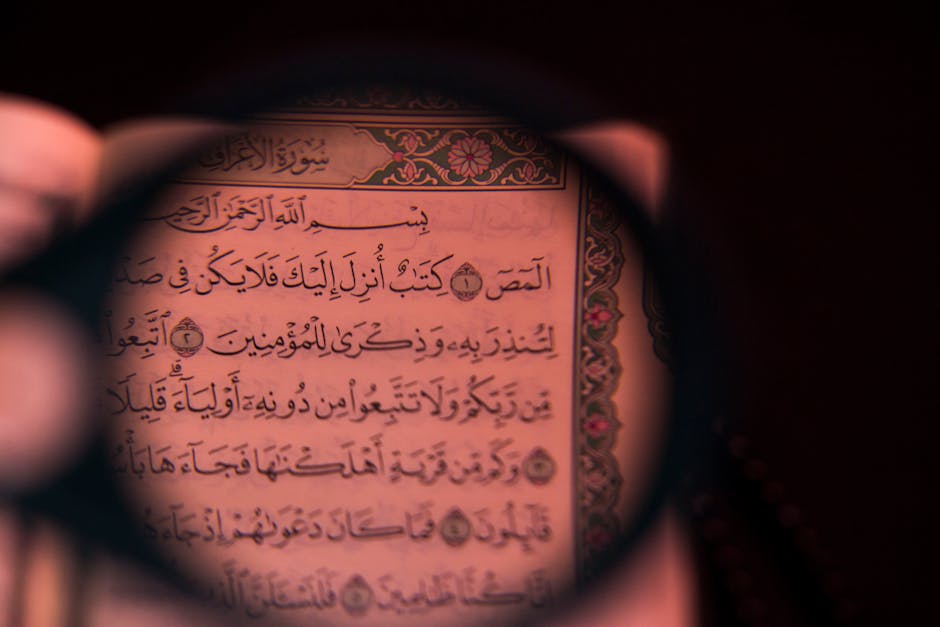 سُورَةُ الأَعْرَافِ
بِسْمِ اللَّهِ الرَّحْمَٰنِ الرَّحِيـ
الٓمٓصٓ ١ كِتَٰبٌ أُنزِلَ إِلَيْكَ فَلَا يَكُن فِى صَدْ
لِتُنذِرَ بِهِۦ وَذِكْرَىٰ لِلْمُؤْمِنِينَ ٢ ٱتَّبِعُوا۟
مِّن رَّبِّكُمْ وَلَا تَتَّبِعُوا۟ مِن دُونِهِۦٓ أَوْلِيَآءَ ۗ قَلِيلًا
٣ وَكَم مِّن قَرْيَةٍ أَهْلَكْنَٰهَا فَجَآءَهَا بَأْسُ
قَآئِلُونَ ٤ فَمَا كَانَ دَعْوَىٰهُمْ إِذْ جَآءَهُ
إِنَّا كُنَّا ظَٰلِمِينَ ٥ فَلَنَسْـَٔلَنَّ ٱلَّذِ